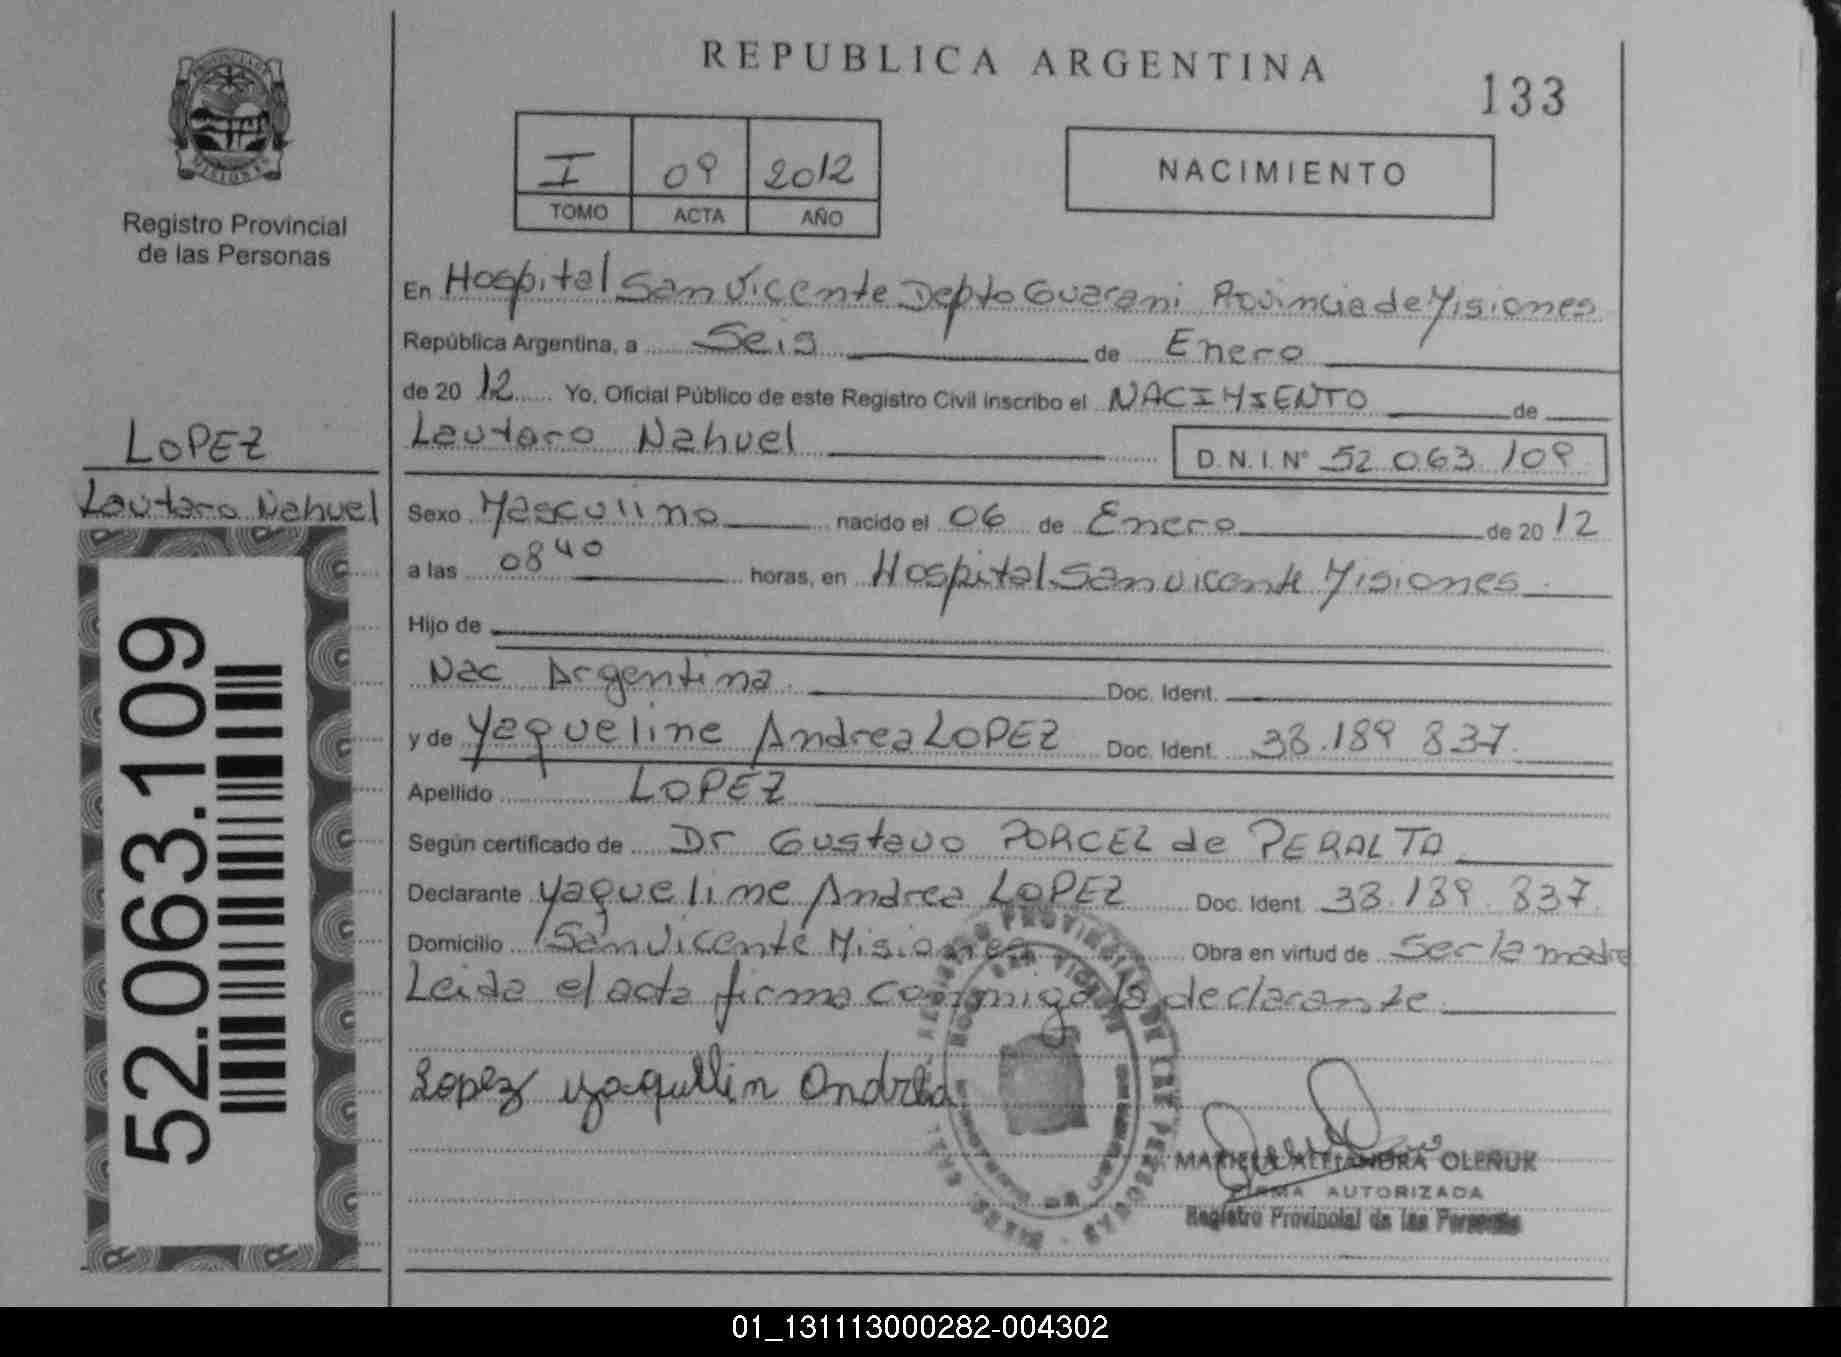 REPUBLICA ARGENTINA
133
PROVINCIA DE MISIONES
Registro Provincial
de las Personas
I 09 2012
TOMO ACTA AÑO
NACIMIENTO
En Hospital San Vicente Depto Guarani Provincia de Misiones
República Argentina, a Seis de Enero
de 20 12 Yo, Oficial Público de este Registro Civil inscribo el NACIMIENTO de
Lautaro Nahuel D.N.I. Nº 52.063.109
LOPEZ
Lautaro Nahuel
52.063.109
Sexo Masculino nacido el 06 de Enero de 20 12
a las 08 40 horas, en Hospital San Vicente Misiones
Hijo de
Nac Argentina Doc. Ident.
y de Yaqueline Andrea LOPEZ Doc. Ident. 33.189 837
Apellido LOPEZ
Según certificado de Dr Gustavo PORCEL de PERALTA
Declarante Yaqueline Andrea LOPEZ Doc. Ident. 33.189.837
Domicilio San Vicente Misiones Obra en virtud de Ser la madre
Leida el acta firma conmigo la declarante
Lopez yaquellin Andrea
MARIELA ALEJANDRA OLENUK
FIRMA AUTORIZADA
Registro Provincial de las Personas
01_131113000282-004302